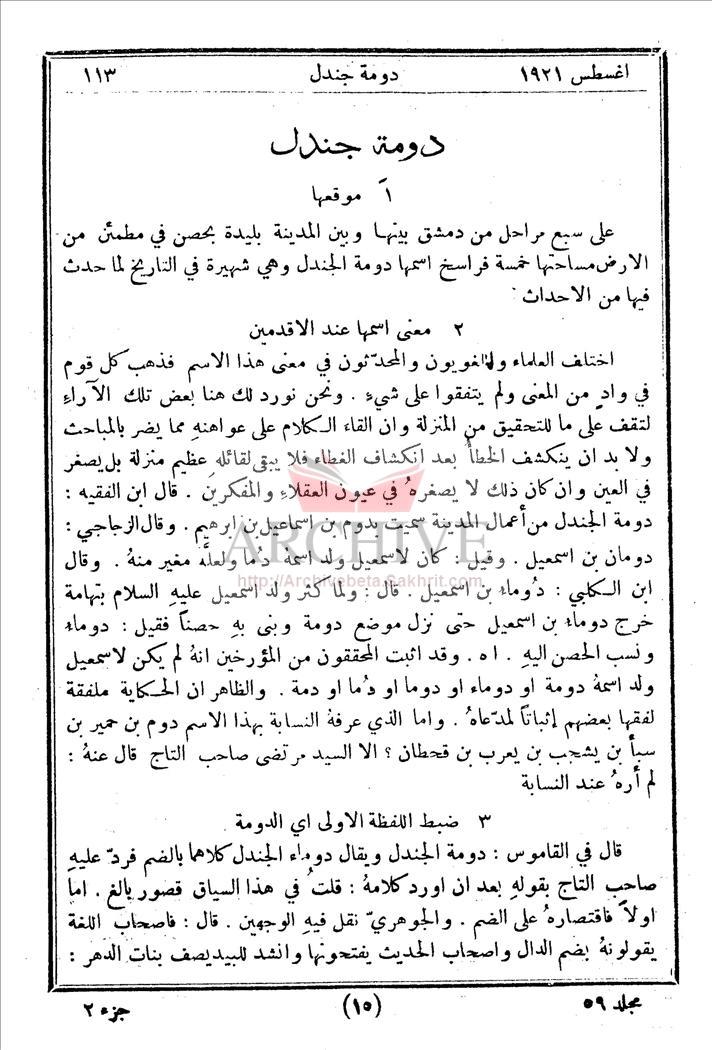 اغسطس ١٩٢١ دومة جندل ١١٣
دومة جندل
١ً موقعها
على سبع مراحل من دمشق بينها وبين المدينة بليدة بحصن في مطمئن من
الارض مساحتها خمسة فراسخ اسمها دومة الجندل وهي شهيرة في التاريخ لما حدث
فيها من الاحداث
٢ معنى اسمها عند الاقدمين
اختلف العلماء واللغويون والمحدّثون في معنى هذا الاسم فذهب كل قوم
في وادٍ من المعنى ولم يتفقوا على شيءٍ . ونحن نورد لك هنا بعض تلك الآراءِ
لتقف على ما للتحقيق من المنزلة وان القاء الكلام على عواهنهِ مما يضر بالمباحث
ولا بد ان ينكشف الخطأُ بعد انكشاف الغطاء فلا يبقى لقائلهِ عظيم منزلة بل يصغر
في العين وان كان ذلك لا يصغرهُ في عيون العقلاءِ والمفكرين . قال ابن الفقيه :
دومة الجندل من أعمال المدينة سميت بدوم بن اسماعيل بن ابرهيم . وقال الزجاجي :
دومان بن اسمعيل . وقيل : كان لاسمعيل ولد اسمهُ دُما ولعلَّه مغير منهُ . وقال
ARCHIVE
http://Archivebeta.Sakhrit.com
ابن الكلبي : دُوماء بن اسمعيل . قال : ولما كثر ولد اسمعيل عليهِ السلام بتهامة
خرج دوماء بن اسمعيل حتى نزل موضع دومة وبنى بهِ حصناً فقيل : دوماء
ونسب الحصن اليهِ . اه . وقد اثبت المحققون من المؤرخين انهُ لم يكن لاسمعيل
ولد اسمهُ دومة او دوماء او دوما او دُما او دمة . والظاهر ان الحكاية ملفقة
لفقها بعضهم إثباتاً لمدّعاهُ . واما الذي عرفهُ النسابة بهذا الاسم دوم بن حمير بن
سبأ بن يشجب بن يعرب بن قحطان ؟ الا السيد مرتضى صاحب التاج قال عنهُ :
لم أرهُ عند النسابة
٣ ضبط اللفظة الاولى اي الدومة
قال في القاموس : دومة الجندل ويقال دوماء الجندل كلاهما بالضم فردّ عليهِ
صاحب التاج بقولهِ بعد ان اورد كلامهُ : قلتُ في هذا السياق قصور بالغ . اما
اولاً فاقتصارهُ على الضم . والجوهريّ نقل فيهِ الوجهين . قال : فاصحاب اللغة
يقولونهُ بضم الدال واصحاب الحديث يفتحونها وانشد للبيد يصف بنات الدهر :
مجلد ٥٩ (١٥) جزء ٢